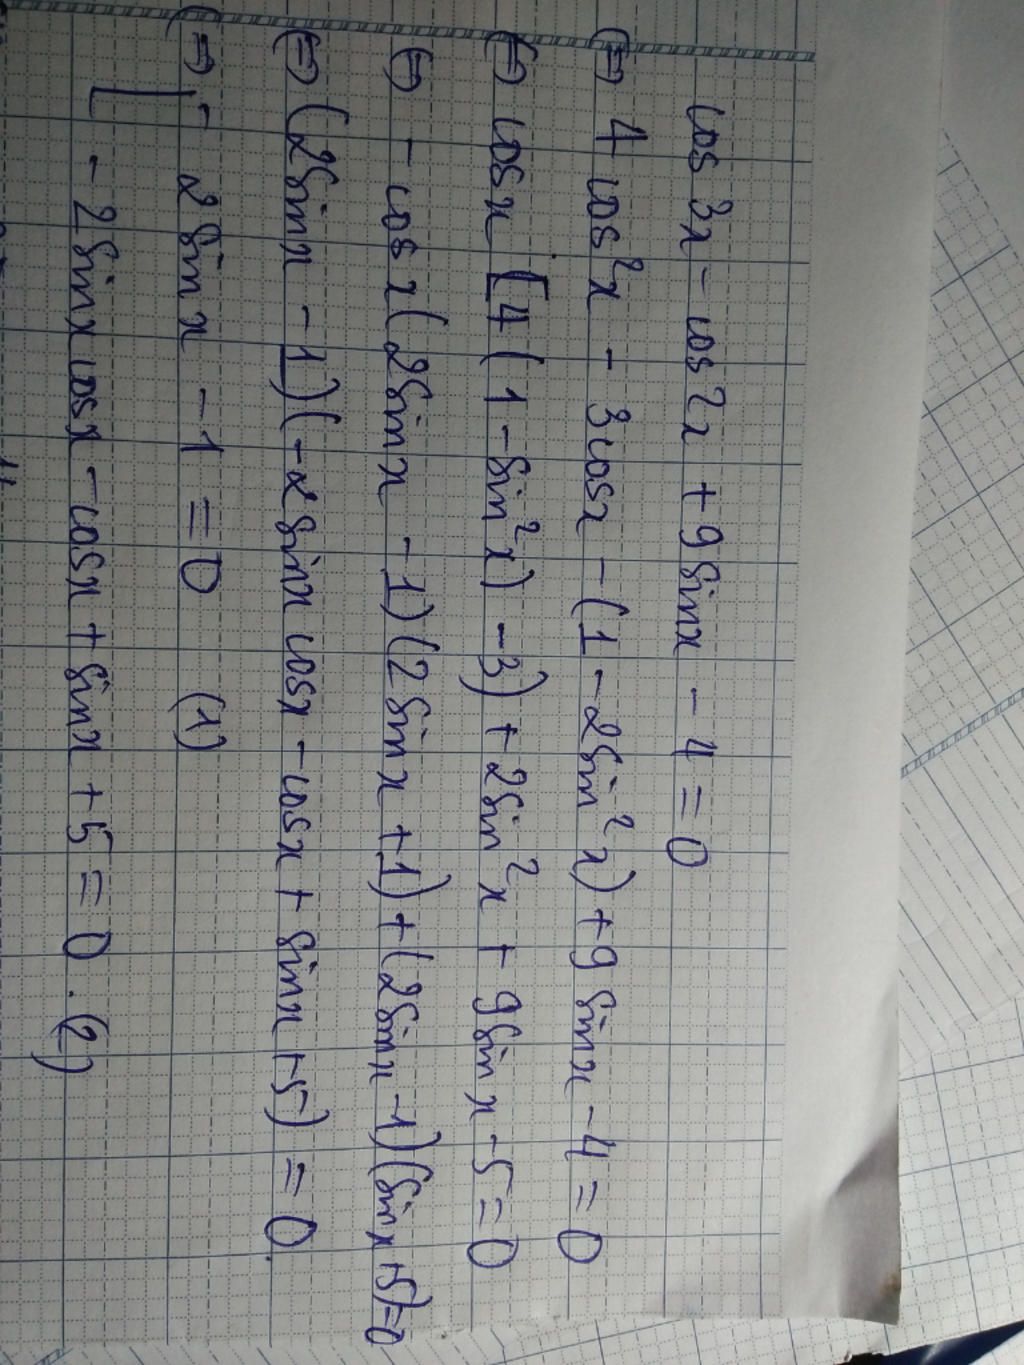 cos 3x - cos 2x + 9 sinx - 4 = 0
(=) 4 cos²x - 3cosx - (1 - 2sin²x) + 9 sinx - 4 = 0
(=) cosx [4(1 - sin²x) - 3) + 2sin²x + 9sinx - 5 = 0
(=) - cosx(2sinx - 1)(2sinx + 1) + (2sinx - 1)(sinx + 5) = 0
(=) (2sinx - 1)(-2sinx cosx - cosx + sinx + 5) = 0.
(=) [ 2sinx - 1 = 0 (1)
- 2sinxcosx - cosx + sinx + 5 = 0. (2)